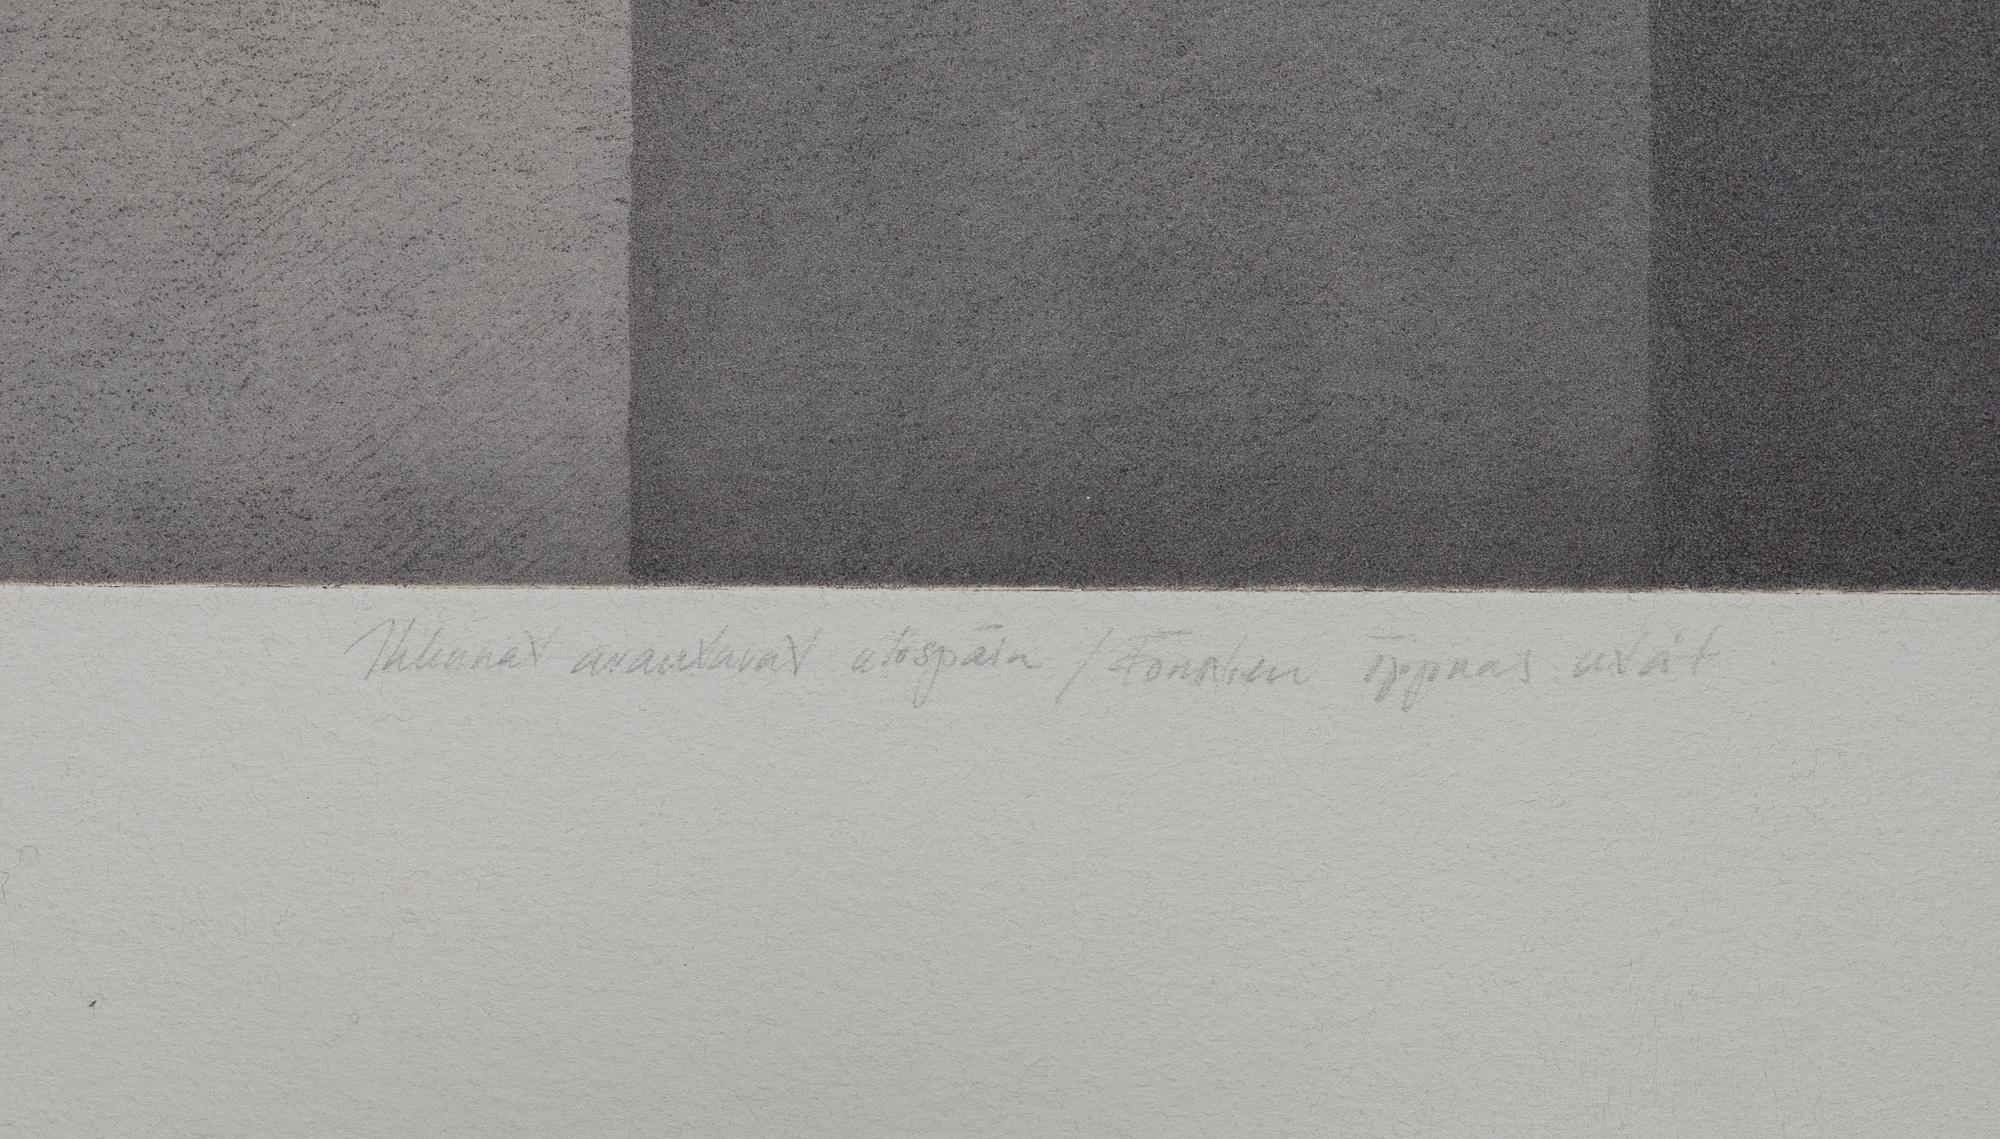 Ikkunat avautuvat ulospäin / Fönstren öppnas utåt